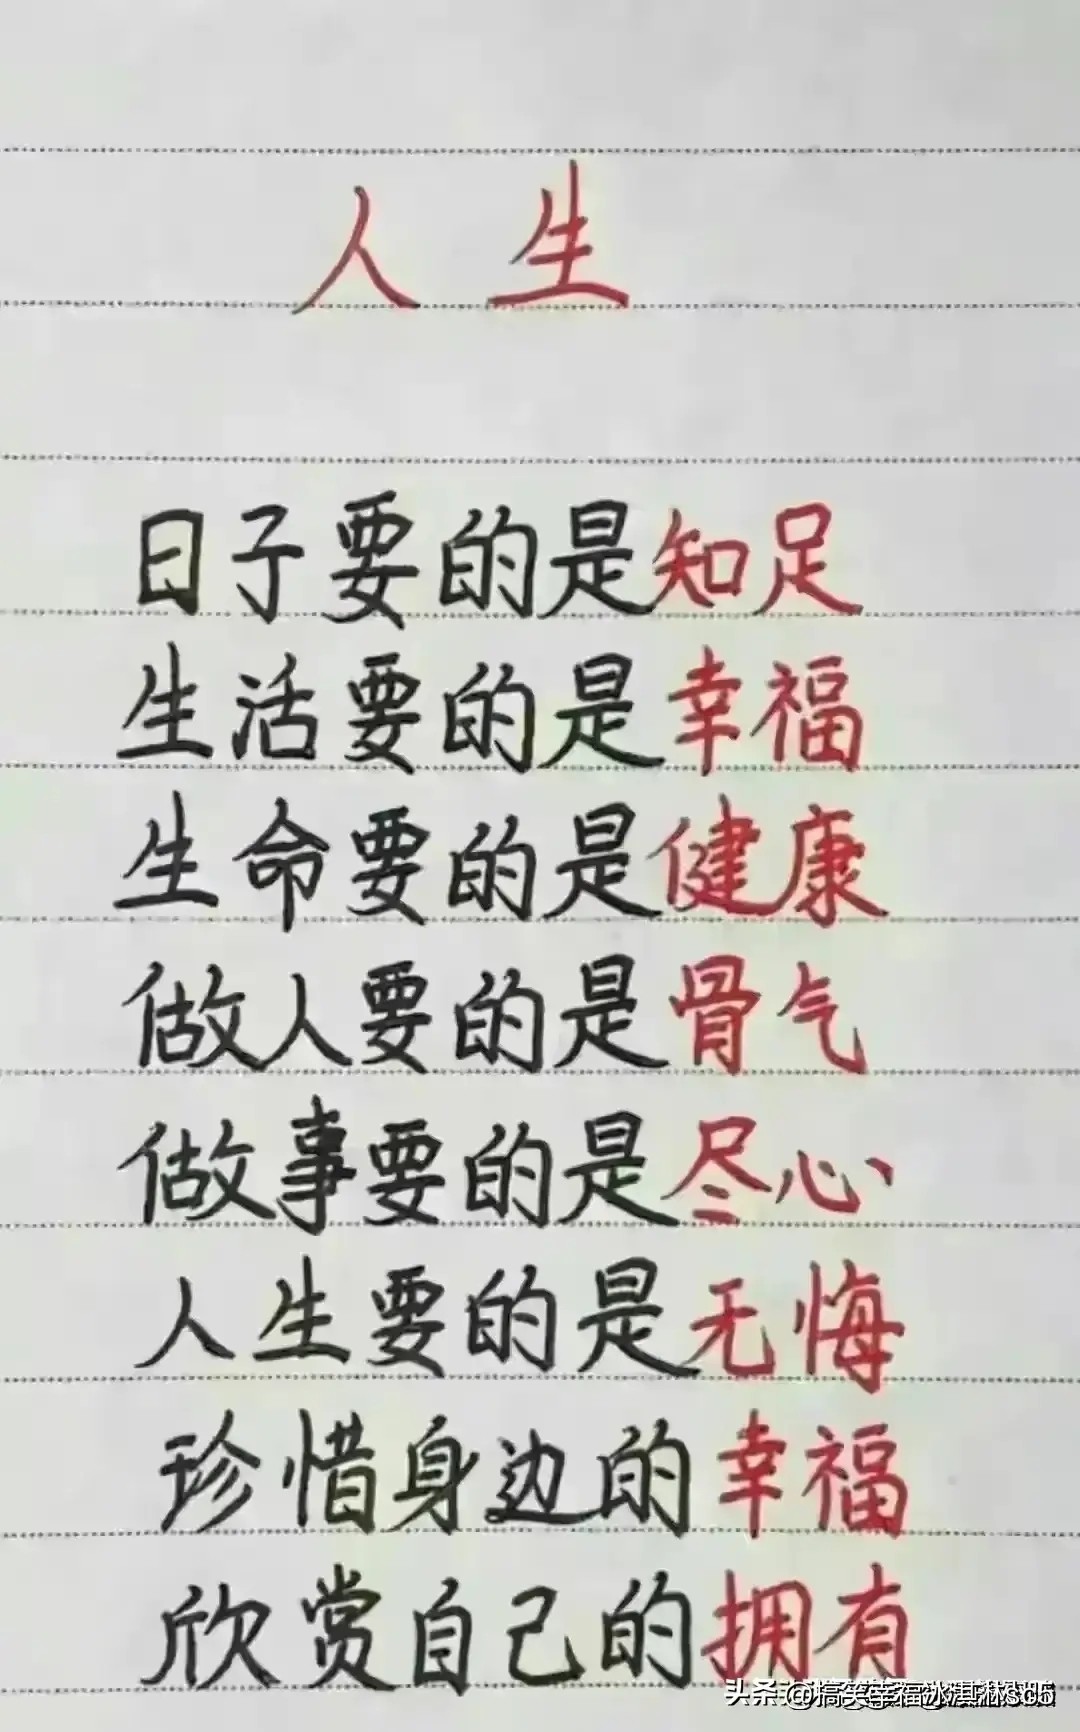 人生
日子要的是知足
生活要的是幸福
生命要的是健康
做人要的是骨气
做事要的是尽心
人生要的是无悔
珍惜身边的幸福
欣赏自己的拥有
头条@搞笑幸福冰淇淋